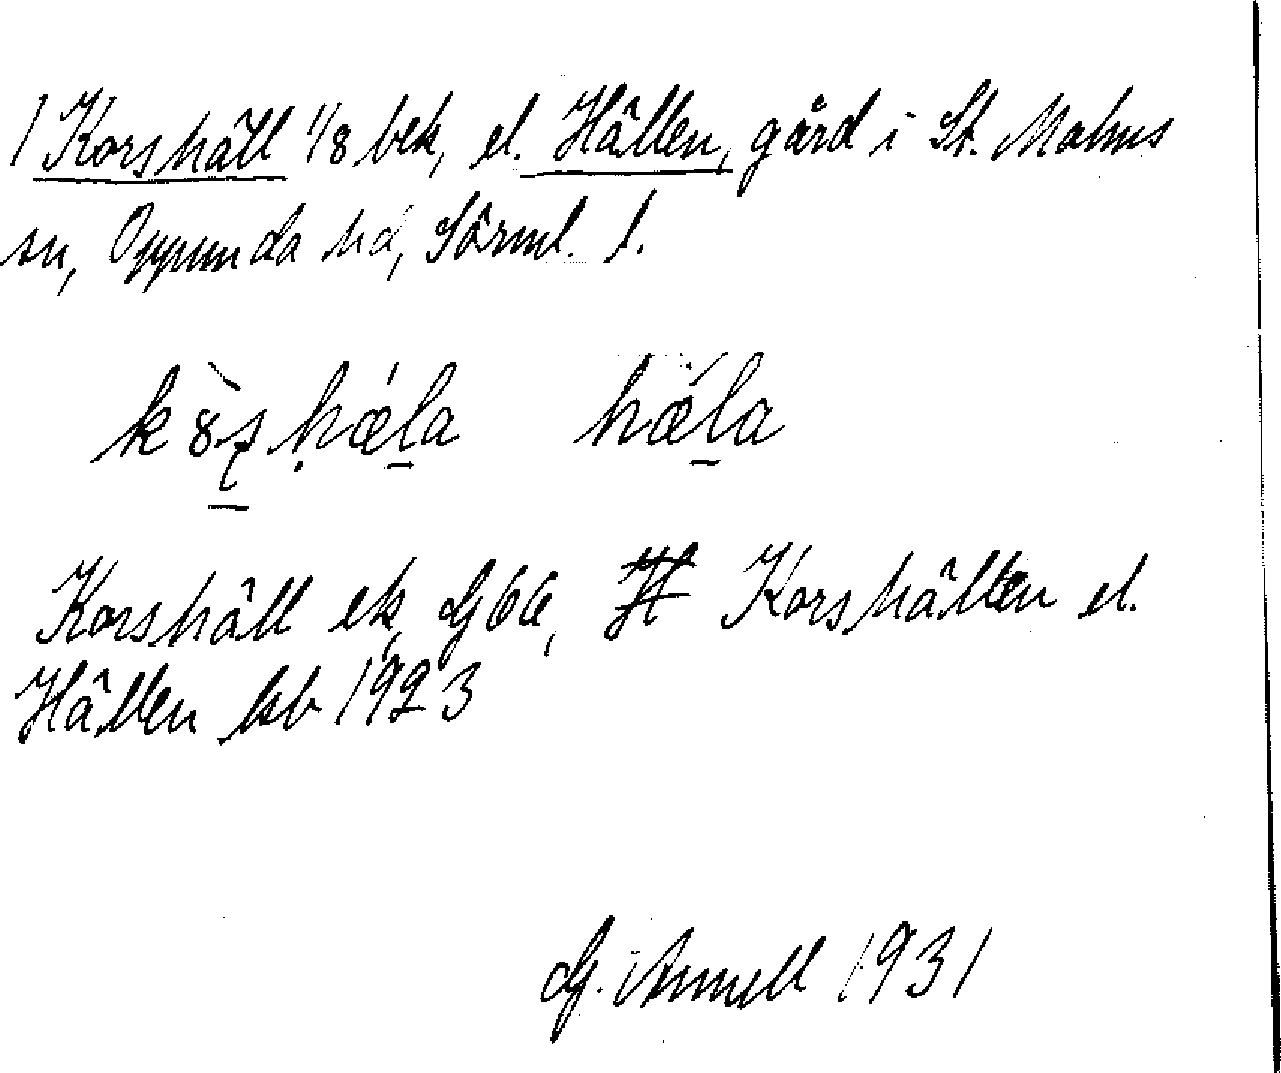 1 Korshäll 1/8 bek, el. Hällen, gård i St. Malms
sn, Oppunda hd, Sörml. l.
hæla
Korshäll ek, G66, Korshällen el.
Hällen ksb 1923
G. Annell 1931